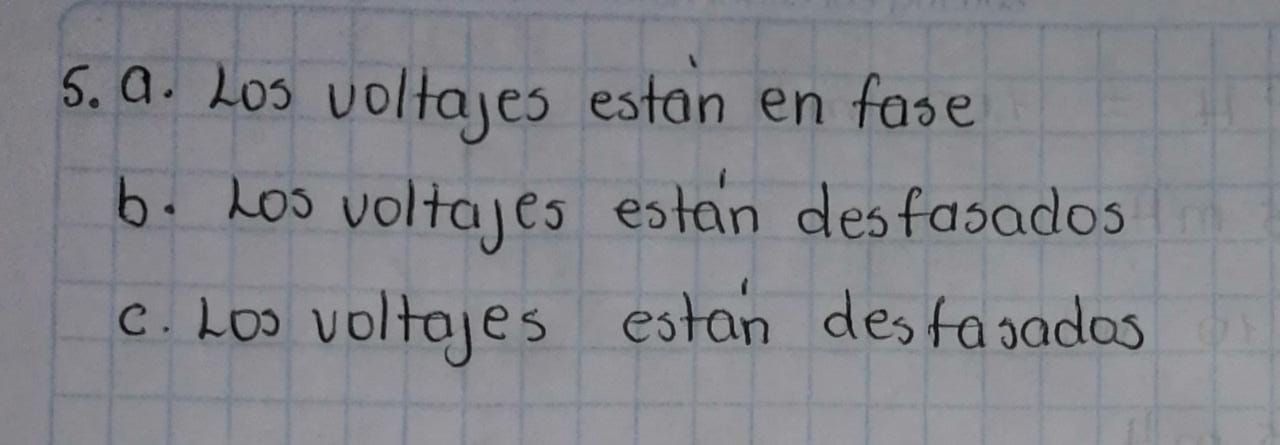 5. a. Los voltajes están en fase
b. Los voltajes están desfasados
c. Los voltajes están desfasados